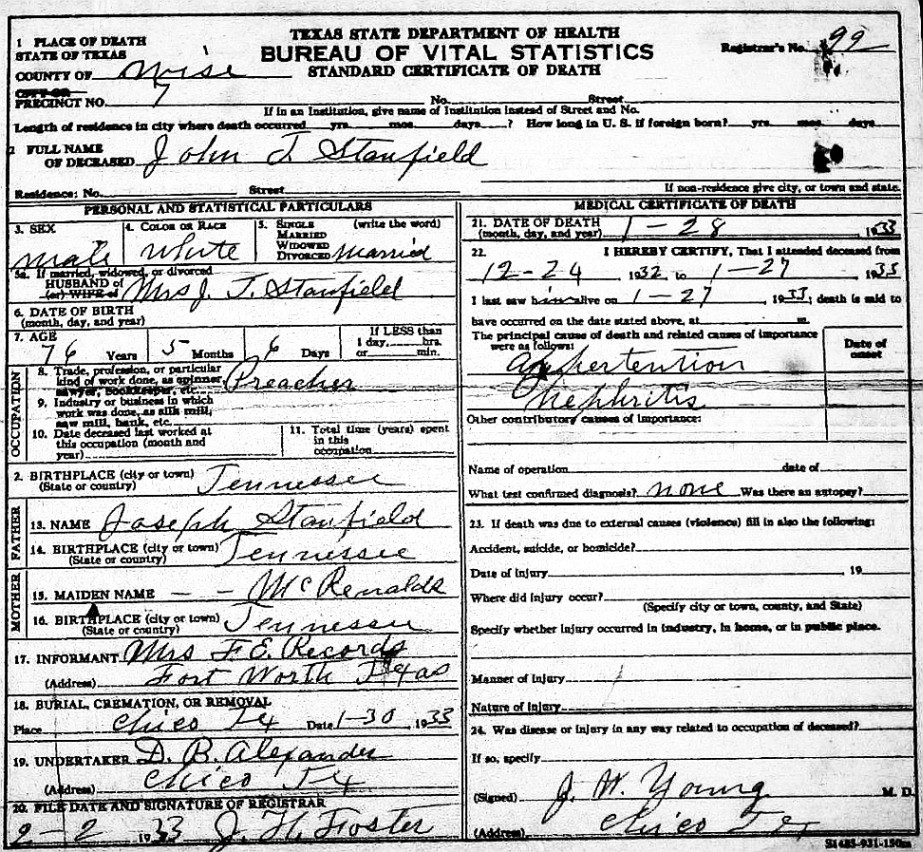 TEXAS STATE DEPARTMENT OF HEALTH
BUREAU OF VITAL STATISTICS
STANDARD CERTIFICATE OF DEATH
Registrar's No. 99
1 PLACE OF DEATH
STATE OF TEXAS
COUNTY OF Wise
CITY OR
PRECINCT NO. 7 No. Street
If in an Institution, give name of Institution instead of Street and No.
Length of residence in city where death occurred yrs. mos. days ? How long in U. S. if foreign born? yrs. mos. days
2 FULL NAME
OF DECEASED John T Stanfield
Residence: No. Street If non-residence give city, or town and state.
PERSONAL AND STATISTICAL PARTICULARS
3. SEX
male
4. COLOR OR RACE
White
5. SINGLE (write the word)
MARRIED
WIDOWED
DIVORCED Married
5a. If married, widowed, or divorced
HUSBAND of
(or) WIFE of Mrs J. T. Stanfield
6. DATE OF BIRTH
(month, day, and year)
7. AGE
76 Years 5 Months 6 Days
If LESS than
1 day, hrs.
or min.
OCCUPATION
8. Trade, profession, or particular
kind of work done, as spinner,
sawyer, bookkeeper, etc. Preacher
9. Industry or business in which
work was done, as silk mill,
saw mill, bank, etc.
10. Date deceased last worked at
this occupation (month and
year)
11. Total time (years) spent
in this
occupation
2. BIRTHPLACE (city or town)
(State or country) Tennessee
FATHER
13. NAME Joseph Stanfield
14. BIRTHPLACE (city or town)
(State or country) Tennessee
MOTHER
15. MAIDEN NAME – – McRenalds
16. BIRTHPLACE (city or town)
(State or country) Tennessee
17. INFORMANT Mrs F. E. Records
(Address) Fort Worth Texas
18. BURIAL, CREMATION, OR REMOVAL
Place Chico Tex Date 1-30 1933
19. UNDERTAKER D. B. Alexander
(Address) Chico Tex
20. FILE DATE AND SIGNATURE OF REGISTRAR
2-2 1933 J. H. Foster
MEDICAL CERTIFICATE OF DEATH
21. DATE OF DEATH
(month, day, and year) 1-28 1933
22. I HEREBY CERTIFY, That I attended deceased from
12-24 1932 to 1-27 1933
I last saw him alive on 1-27 1933, death is said to
have occurred on the date stated above, at m.
The principal cause of death and related causes of importance
were as follows:
Date of
onset
Nephritis
Other contributory causes of importance:
Name of operation date of
What test confirmed diagnosis? none Was there an autopsy?
23. If death was due to external causes (violence) fill in also the following:
Accident, suicide, or homicide?
Date of injury 19
Where did injury occur?
(Specify city or town, county, and State)
Specify whether injury occurred in industry, in home, or in public place.
Manner of injury
Nature of injury
24. Was disease or injury in any way related to occupation of deceased?
If so, specify
(Signed) J. W. Young M. D.
(Address) Chico Tex
S1485-931-150m